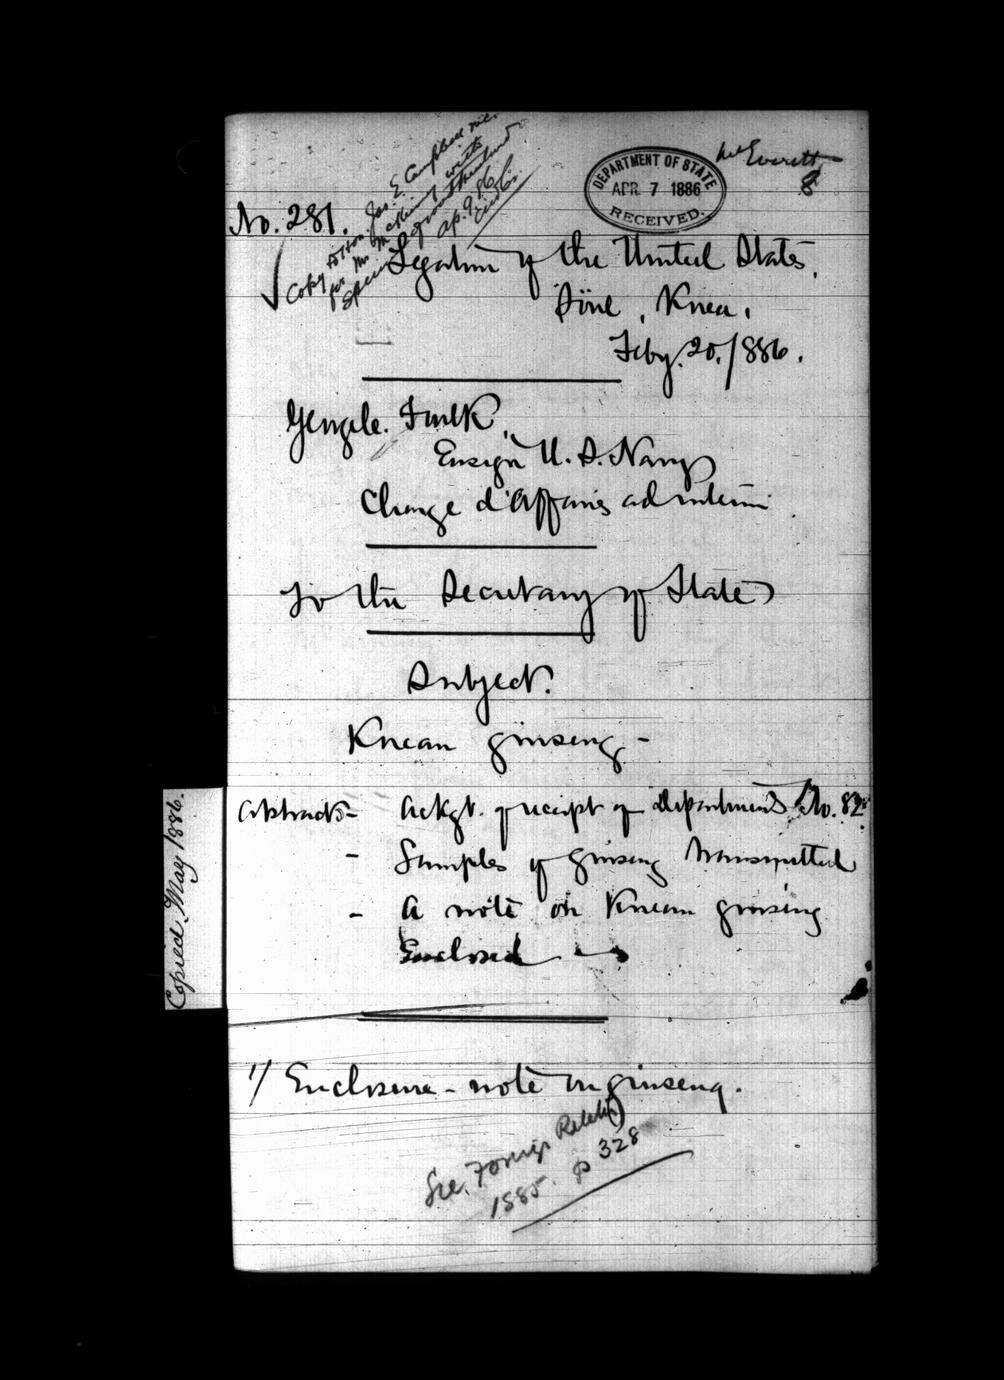 DEPARTMENT OF STATE
APR 7 1886
RECEIVED.
Mr Everett
8
No. 281.
Copy to Hon. Jas. E. Campbell M.C.
for Mr. McKinney with
Ap. 9. 86.
Legation of the United States,
Söul, Korea,
Feby. 20./886.
George C. Foulk,
Ensign U. S. Navy
Charge d'Affaires ad interim
To the Secretary of State
Subject.
Korean ginseng-
Abstracts- Ackgt. of receipt of Department's No. 82.
- Samples of Ginseng transmitted
- A note on Korean ginseng
Enclosed
1/ Enclosure - note on ginseng.
See, Foreign Relat(s)
1885. p 328
Copied, May 1886.